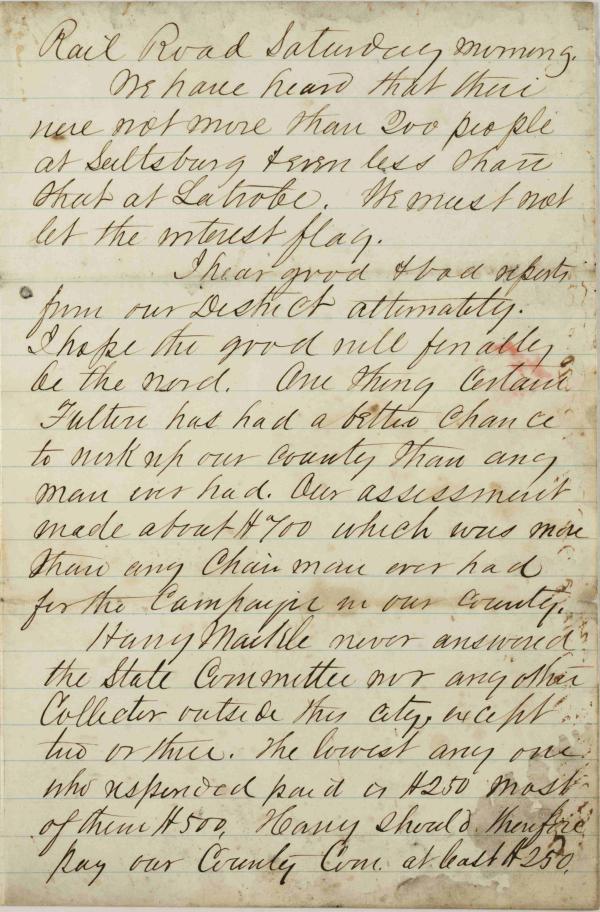 Rail Road Saturday morning.
We have heard that there
were not more than 200 people
at Saltsburg & even less than
that at Latrobe. We must not
let the interest flag.
I hear good & bad reports
from our District alternately.
I hope the good will finally
be the word. One thing certain
Fulton has had a better chance
to work up our county than any
man ever had. Our assessment
made about $700 which was more
than any Chairman ever had
for the Campaign in our county.
Harry never answered
the State Committee nor any other
Collector outside this city, except
two or three. The lowest any one
who responded paid is $250 most
of them $500, Harry should therefore
pay our County Com. at least $250.